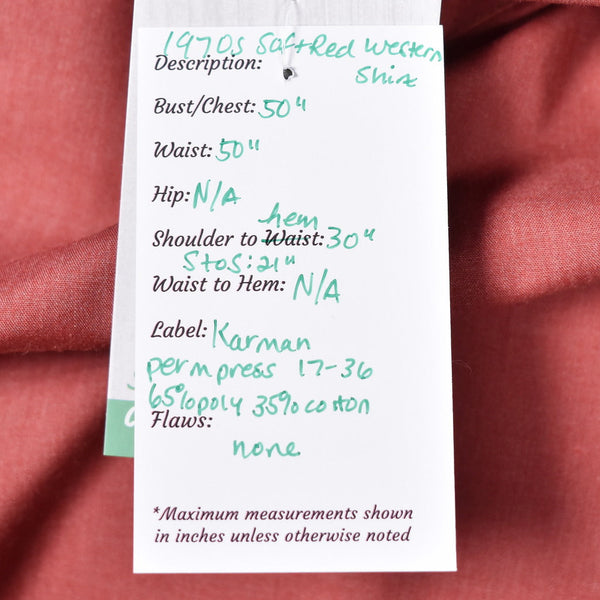 1970s Soft Red Western
Description: Shirt
Bust/Chest: 50"
Waist: 50"
Hip: N/A
hem
Shoulder to Waist: 30"
StoS: 21"
Waist to Hem: N/A
Label: Karman
perm press 17-36
65% poly 35% cotton
Flaws:
none
*Maximum measurements shown
in inches unless otherwise noted